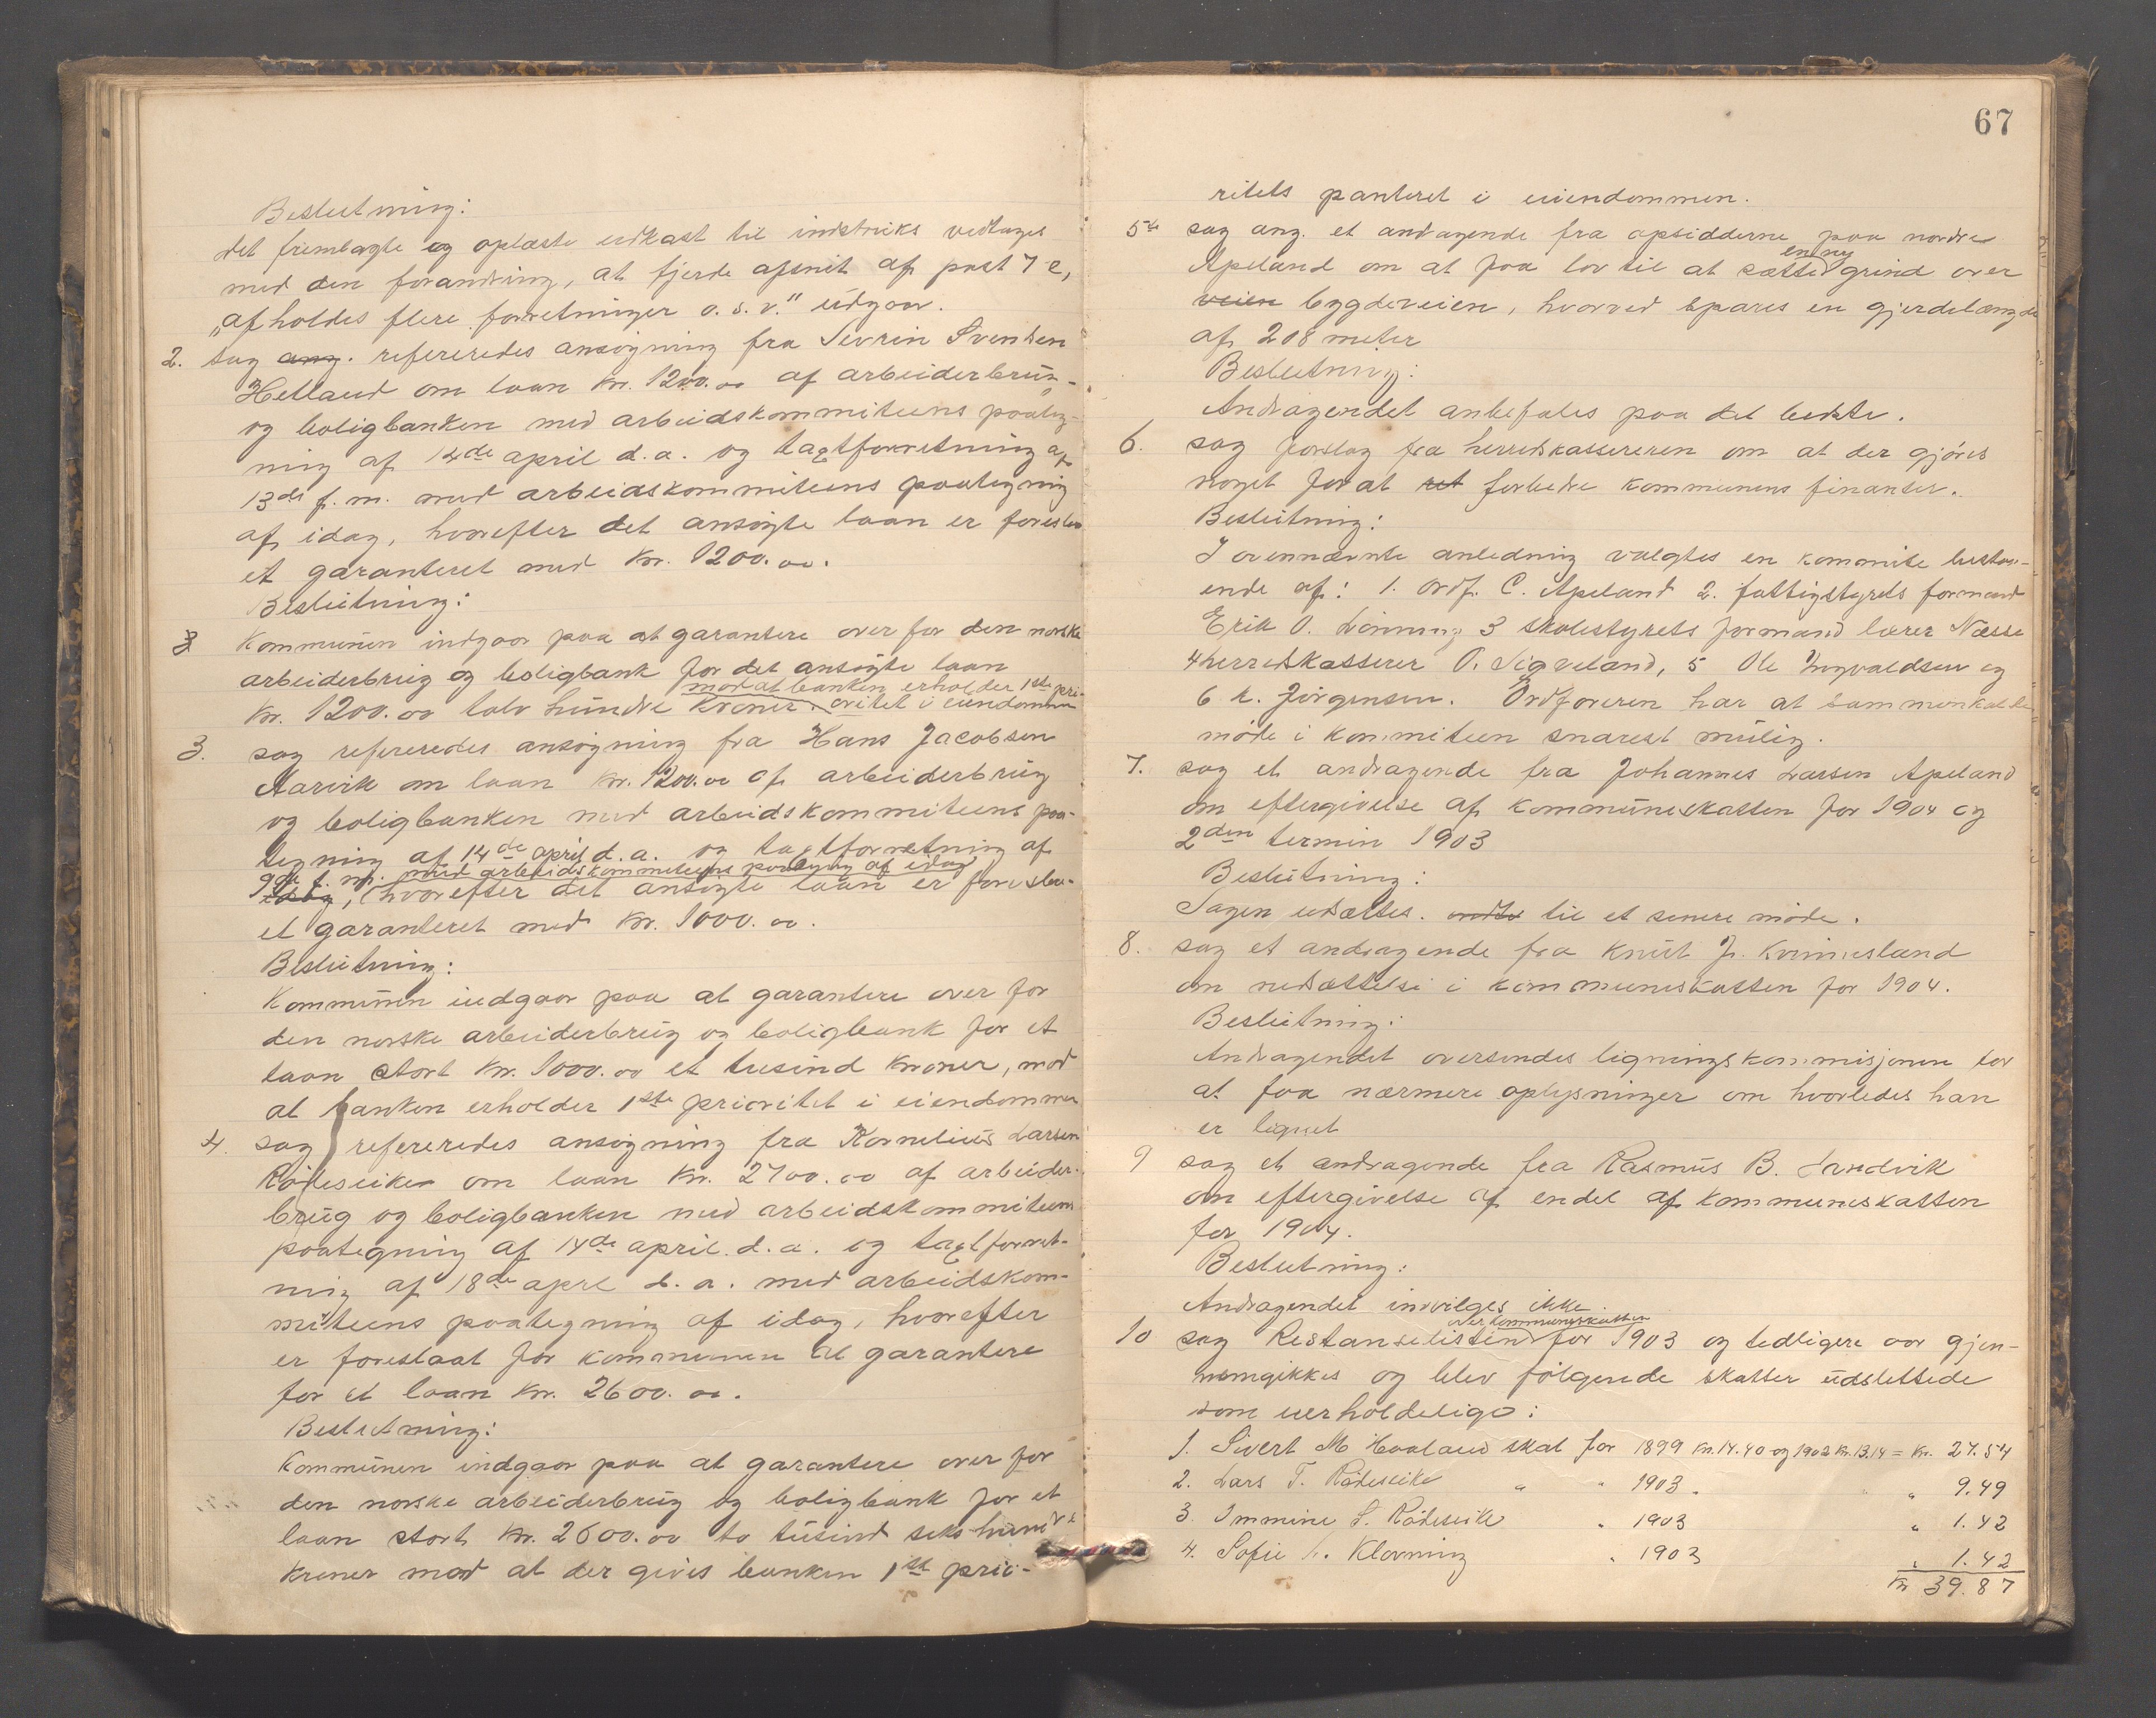 Beslutning:
det fremlagte og oplæste udkast til instruks vedtages
med den forandring, at fjerde afsnit af post 7 e,
"afholdes flere forretninger o. s. v." udgaar.
2. sag ang. refereredes ansøgning fra Sevrin Svendsen
Hetland om laan kr. 1200.00 af arbeiderbrug-
og boligbanken med arbeidskommiteens paateg-
ning af 14de april d. a. og taxtforretning af
13de f. m. med arbeidskommiteens paategning
af idag, hvorefter det ansøgte laan er foresla-
et garanteret med kr. 1200.00.
Beslutning:
Kommunen indgaar paa at garantere over for den norske
arbeiderbrug og boligbank for det ansøgte laan
mod at banken erholder 1ste pri-
kr. 1200.00 tolv hundre kroner. oritet i eiendommen
3. sag refereredes ansøgning fra Hans Jacobsen
Aarvik om laan kr. 1200.00 af arbeiderbrug
og boligbanken med arbeidskommiteens paa-
tegning af 14de april d. a. og taxtforretning af
9de f. m. med arbeidskommiteens paategning af idag
idag, hvorefter det ansøgte laan er foresla-
et garanteret med kr. 1000.00.
Beslutning:
Kommunen indgaar paa at garantere over for
den norske arbeiderbrug og boligbank for et
laan stort kr. 1000.00 et tusind kroner, mod
at banken erholder 1ste prioritet i eiendommen
4. sag refereredes ansøgning fra Kornelius Larsen
Rødeseike om laan kr. 2700.00 af arbeider-
brug og boligbanken med arbeidskommiteens
paategning af 14de april. d. a. og taxtforret-
ning af 18de aprl d. a. med arbeidskom-
miteens paategning af idag, hvorefter
er foreslaat for kommunen at garantere
for et laan kr. 2600.00.
Beslutning:
Kommunen indgaar paa at garantere over for
den norske arbeiderbrug og boligbank for et
laan stort kr. 2600.00 to tusind seks hundre
kroner mod at der gives banken 1ste prio-
67
ritets panteret i eiendommen.
5te sag ang. et andragende fra opsidderne paa nordre
en ny
Apeland om at faa lov til at sætte grind over
veien bygdeveien, hvorved spares en gjerdelængde
af 208 meter
Beslutning:
Andragendet anbefales paa det bedste.
6. sag forslag fra herredskassereren om at der gjøres
noget for at ret forbedre kommunens finanser.
Beslutning:
I ovennævnte anledning valgtes en kommite bestaa-
ende af: 1. ordf. C. Apeland 2. fattigstyrets formand
Erik O. Lønning 3 skolestyrets formand lærer Næsse
4 herredskasserer O. Sigveland, 5 Ole Ingvaldsen og
6 k. Jørgensen. Ordføreren har at sammenkalde
møde i kommiteen snarest mulig.
7. sag et andragende fra Johannes Larsen Apeland
om eftergivelse af kommuneskatten for 1904 og
2den termin 1903
Beslutning:
Sagen udsættes. til et senere møde.
8. sag et andragende fra Knut J. Kvinnesland
om nedsættelse i kommuneskatten for 1904.
Beslutning:
Andragendet oversendes ligningskommisjonen for
at faa nærmere oplysninger om hvorledes han
er lignet
9 sag et andragende fra Rasmus B. Sandvik
om eftergivelse af endel af kommuneskatten
for 1904.
Beslutning:
Andragendet indvilges ikke.
over kommuneskatten
10 sag Restanselisten for 1903 og tedligere aar gjen-
nemgikkes og blev følgende skatter udslettede
som uerholdelige:
1. Sivert M Haaland skat for 1899 kr. 14.40 og 1902 kr. 13.14 = kr. 27.54
2. Lars T. Rødeseike " " 1903. " 9.49
3. Immine S. Rødeseike " 1903 " 1.42
4. Sofie Klovning " 1903 " 1.42
kr 39.87